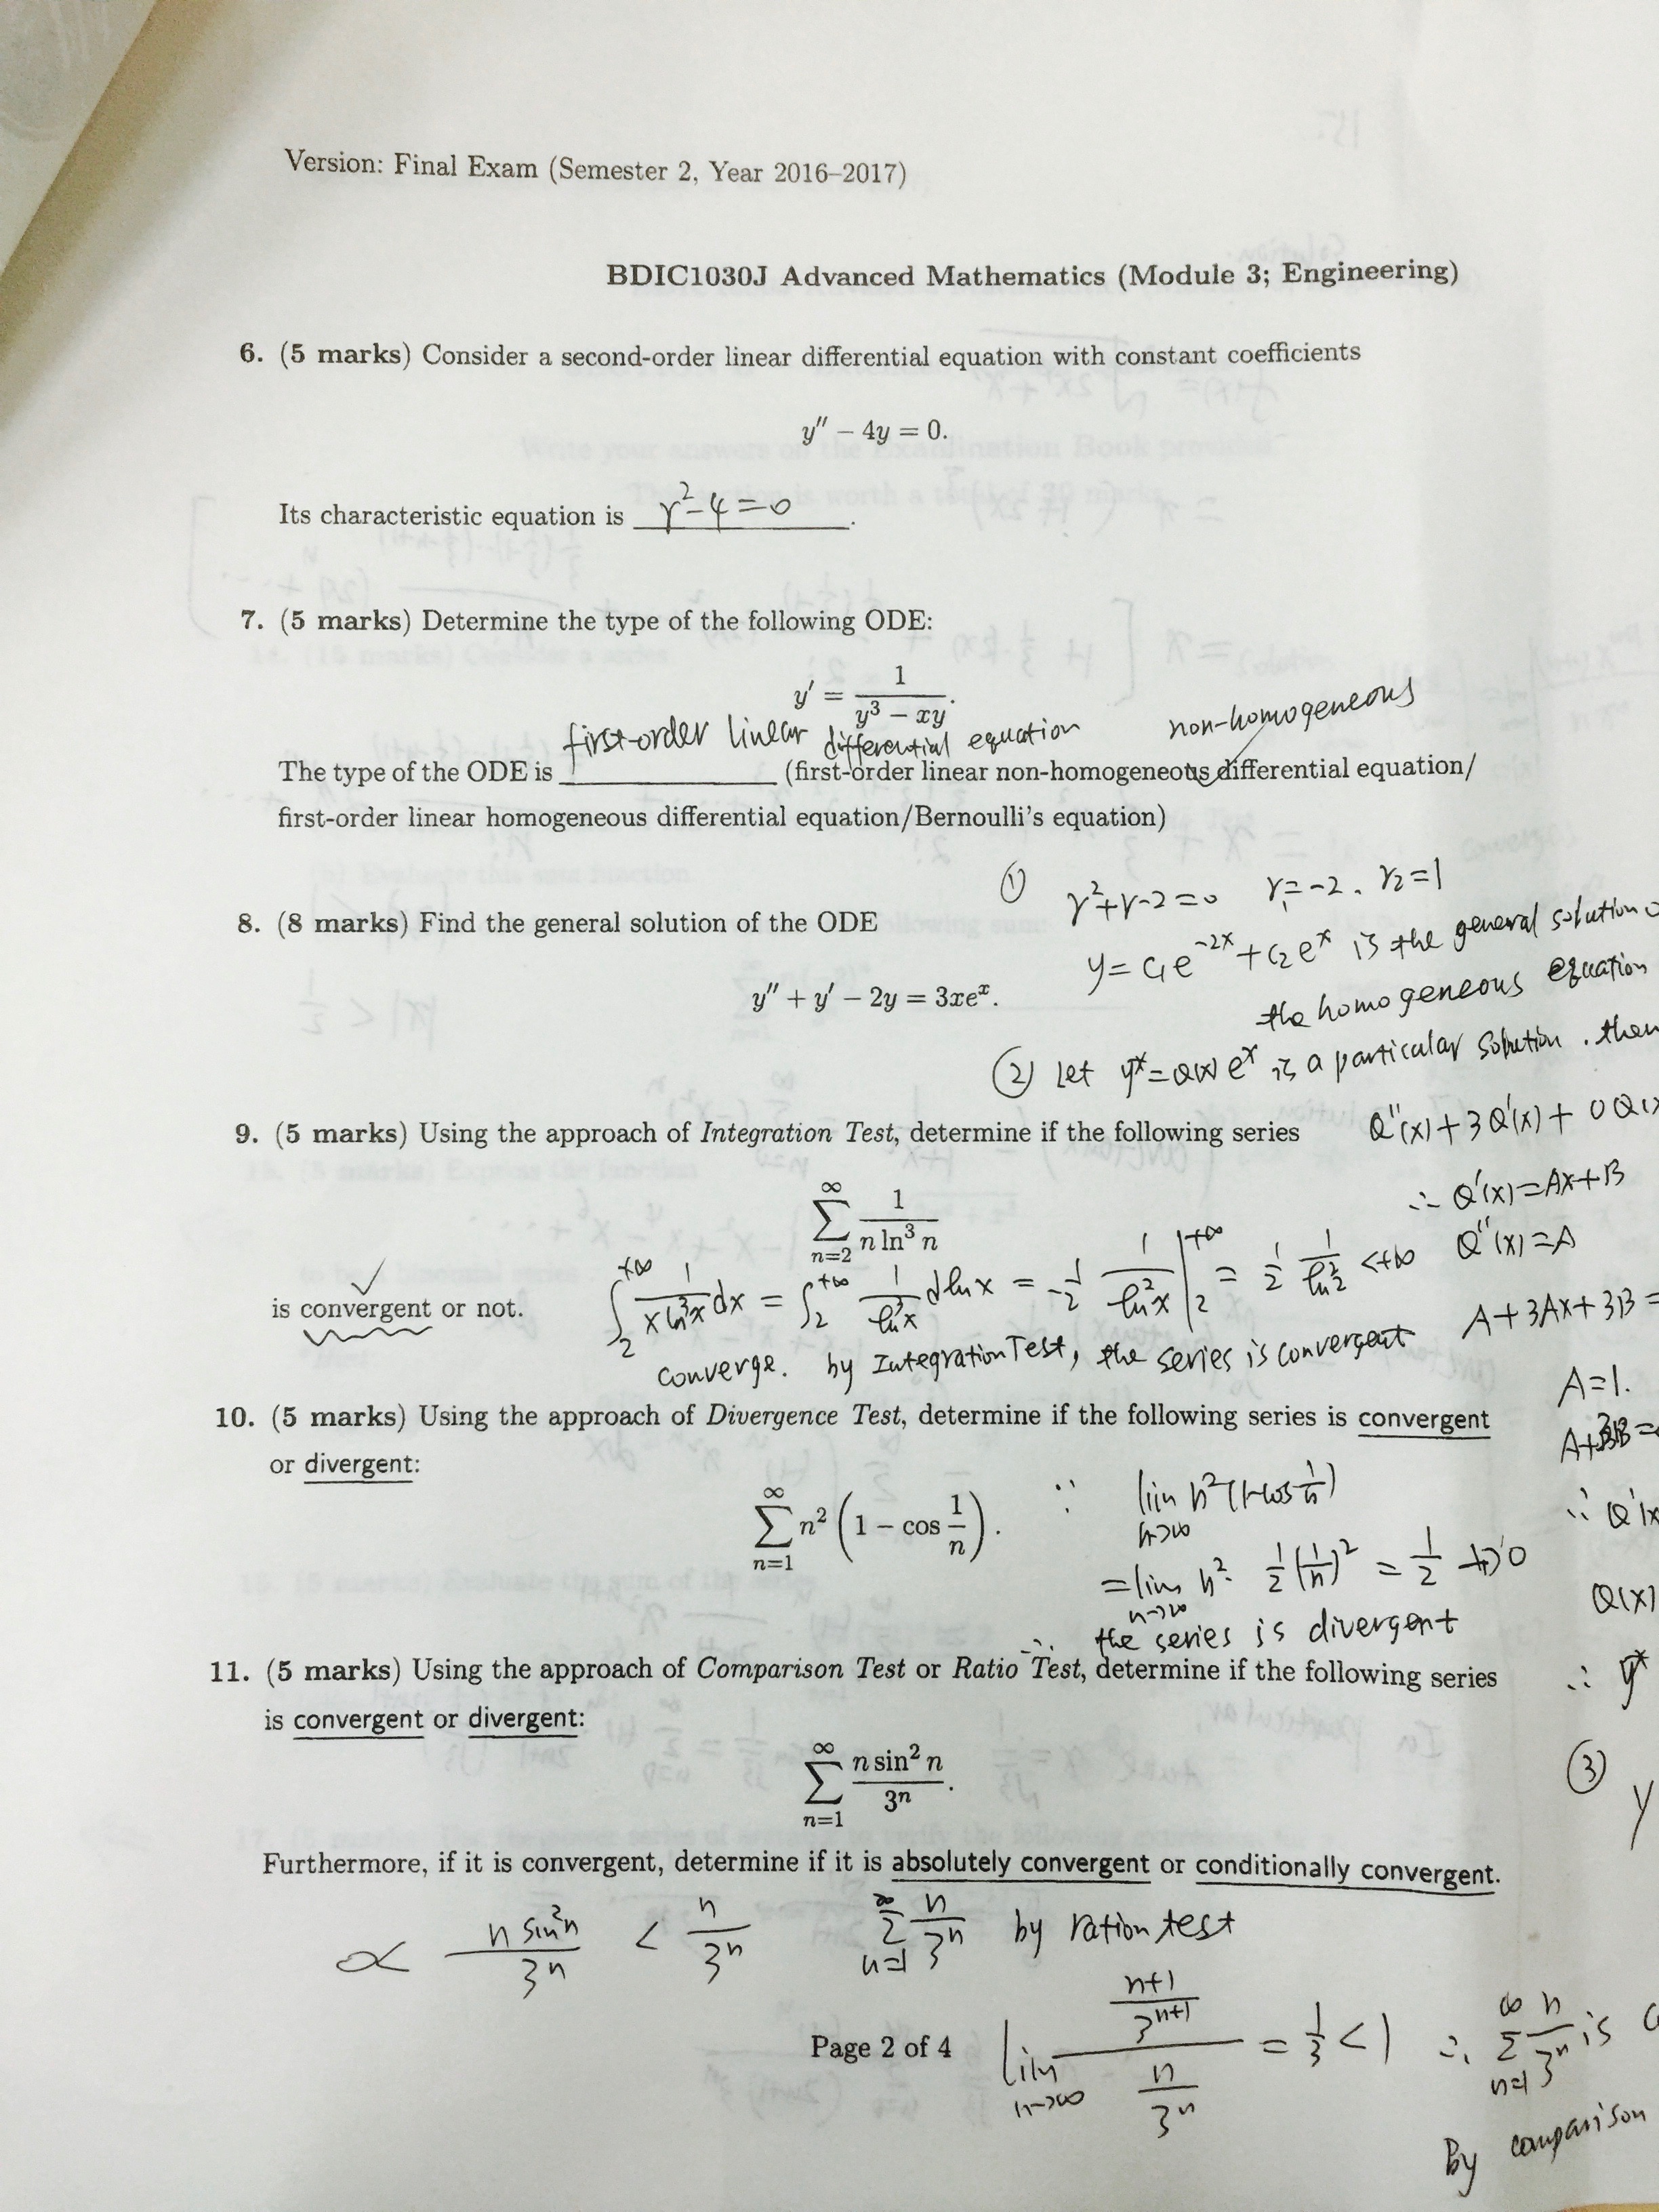 Version: Final Exam (Semester 2, Year 2016–2017)
BDIC1030J Advanced Mathematics (Module 3; Engineering)
6. (5 marks) Consider a second-order linear differential equation with constant coefficients
y'' − 4y = 0.
Its characteristic equation is r²−4=0.
7. (5 marks) Determine the type of the following ODE:
y' = 1/(y³ − xy).
first-order linear differential equation non-homogeneous
The type of the ODE is ____________ (first-order linear non-homogeneous differential equation/
first-order linear homogeneous differential equation/Bernoulli's equation)
① r²+r-2=0 r₁=-2. r₂=1
8. (8 marks) Find the general solution of the ODE
y=c₁e^{-2x}+c₂e^x is the general solution
y'' + y' − 2y = 3xe^x.
the homogeneous equation
② Let y*=Q(x)e^x is a particular solution. then
Q''(x)+3Q'(x)+0Q(x
9. (5 marks) Using the approach of Integration Test, determine if the following series
∴ Q'(x)=Ax+B
∑_{n=2}^{∞} 1/(n ln³ n)
Q''(x)=A
is convergent or not.
∫_2^{+∞} 1/(x ln³x) dx = ∫_2^{+∞} 1/ln³x dlnx = -1/2 1/ln²x |_2^{+∞} = 1/2 1/ln²2 <+∞
A+3Ax+3B=
converge. by Integration Test, the series is convergent
A=1.
10. (5 marks) Using the approach of Divergence Test, determine if the following series is convergent
A+3B=
or divergent:
∑_{n=1}^{∞} n² (1 − cos 1/n).
∵ lim_{n→∞} n²(1-cos 1/n)
∴ Q'(x
=lim_{n→∞} n²· 1/2 (1/n)² = 1/2 ↛ 0
Q(x)
∴ the series is divergent
11. (5 marks) Using the approach of Comparison Test or Ratio Test, determine if the following series
∴ y*
is convergent or divergent:
∑_{n=1}^{∞} n sin² n / 3ⁿ.
③ y
Furthermore, if it is convergent, determine if it is absolutely convergent or conditionally convergent.
n sin²n / 3ⁿ < n/3ⁿ ∑_{n=1}^{∞} n/3ⁿ by ration test
lim_{n→∞} ((n+1)/3^{n+1})/(n/3ⁿ) = 1/3 <1 ∴ ∑_{n=1}^{∞} n/3ⁿ is
Page 2 of 4
By comparison